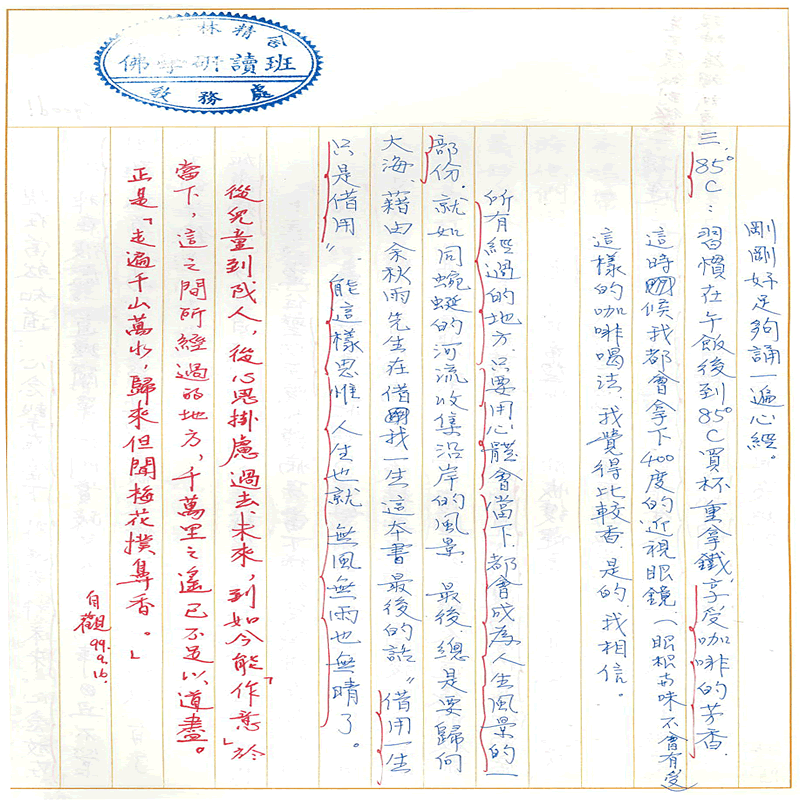 林精
佛學研讀班
教務處
剛剛好足夠誦一遍心經。
三. 85°C：習慣在午飯後到85°C買杯重拿鐵,享受咖啡的芳香.
這時候我都會拿下400度的近視眼鏡(眼根共味不會有受)
這樣的咖啡喝法.我覺得比較香.是的.我相信。
所有經過的地方.只要用心體會當下.都會成為人生風景的一
部份.就如同蜿蜒的河流收集沿岸的風景.最後.總是要歸向
大海.藉由余秋雨先生在借我一生這本書最後的話"借用一生
只是借用"能這樣思惟.人生也就無風無雨也無晴了。
從兒童到成人，從心思掛慮過去、未來，到如今能「作意」於
當下，這之間所經過的地方，千萬里之遙已不足以道盡。
正是「走遍千山萬水，歸來但聞梅花撲鼻香。」
自觀
99.9.16.